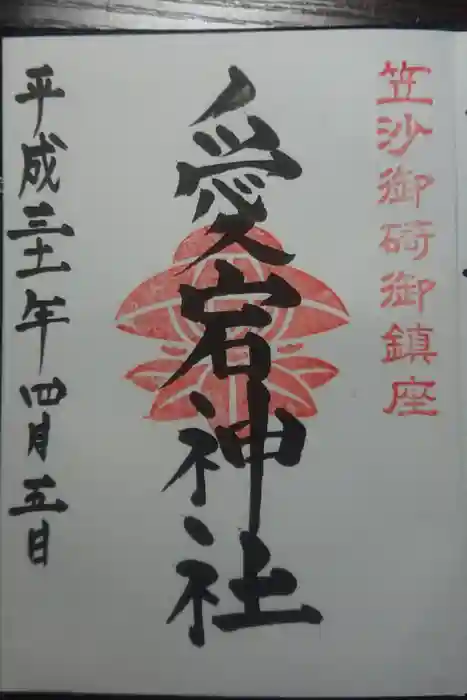 笠沙御碕御鎮座
愛宕神社
平成三十一年四月五日